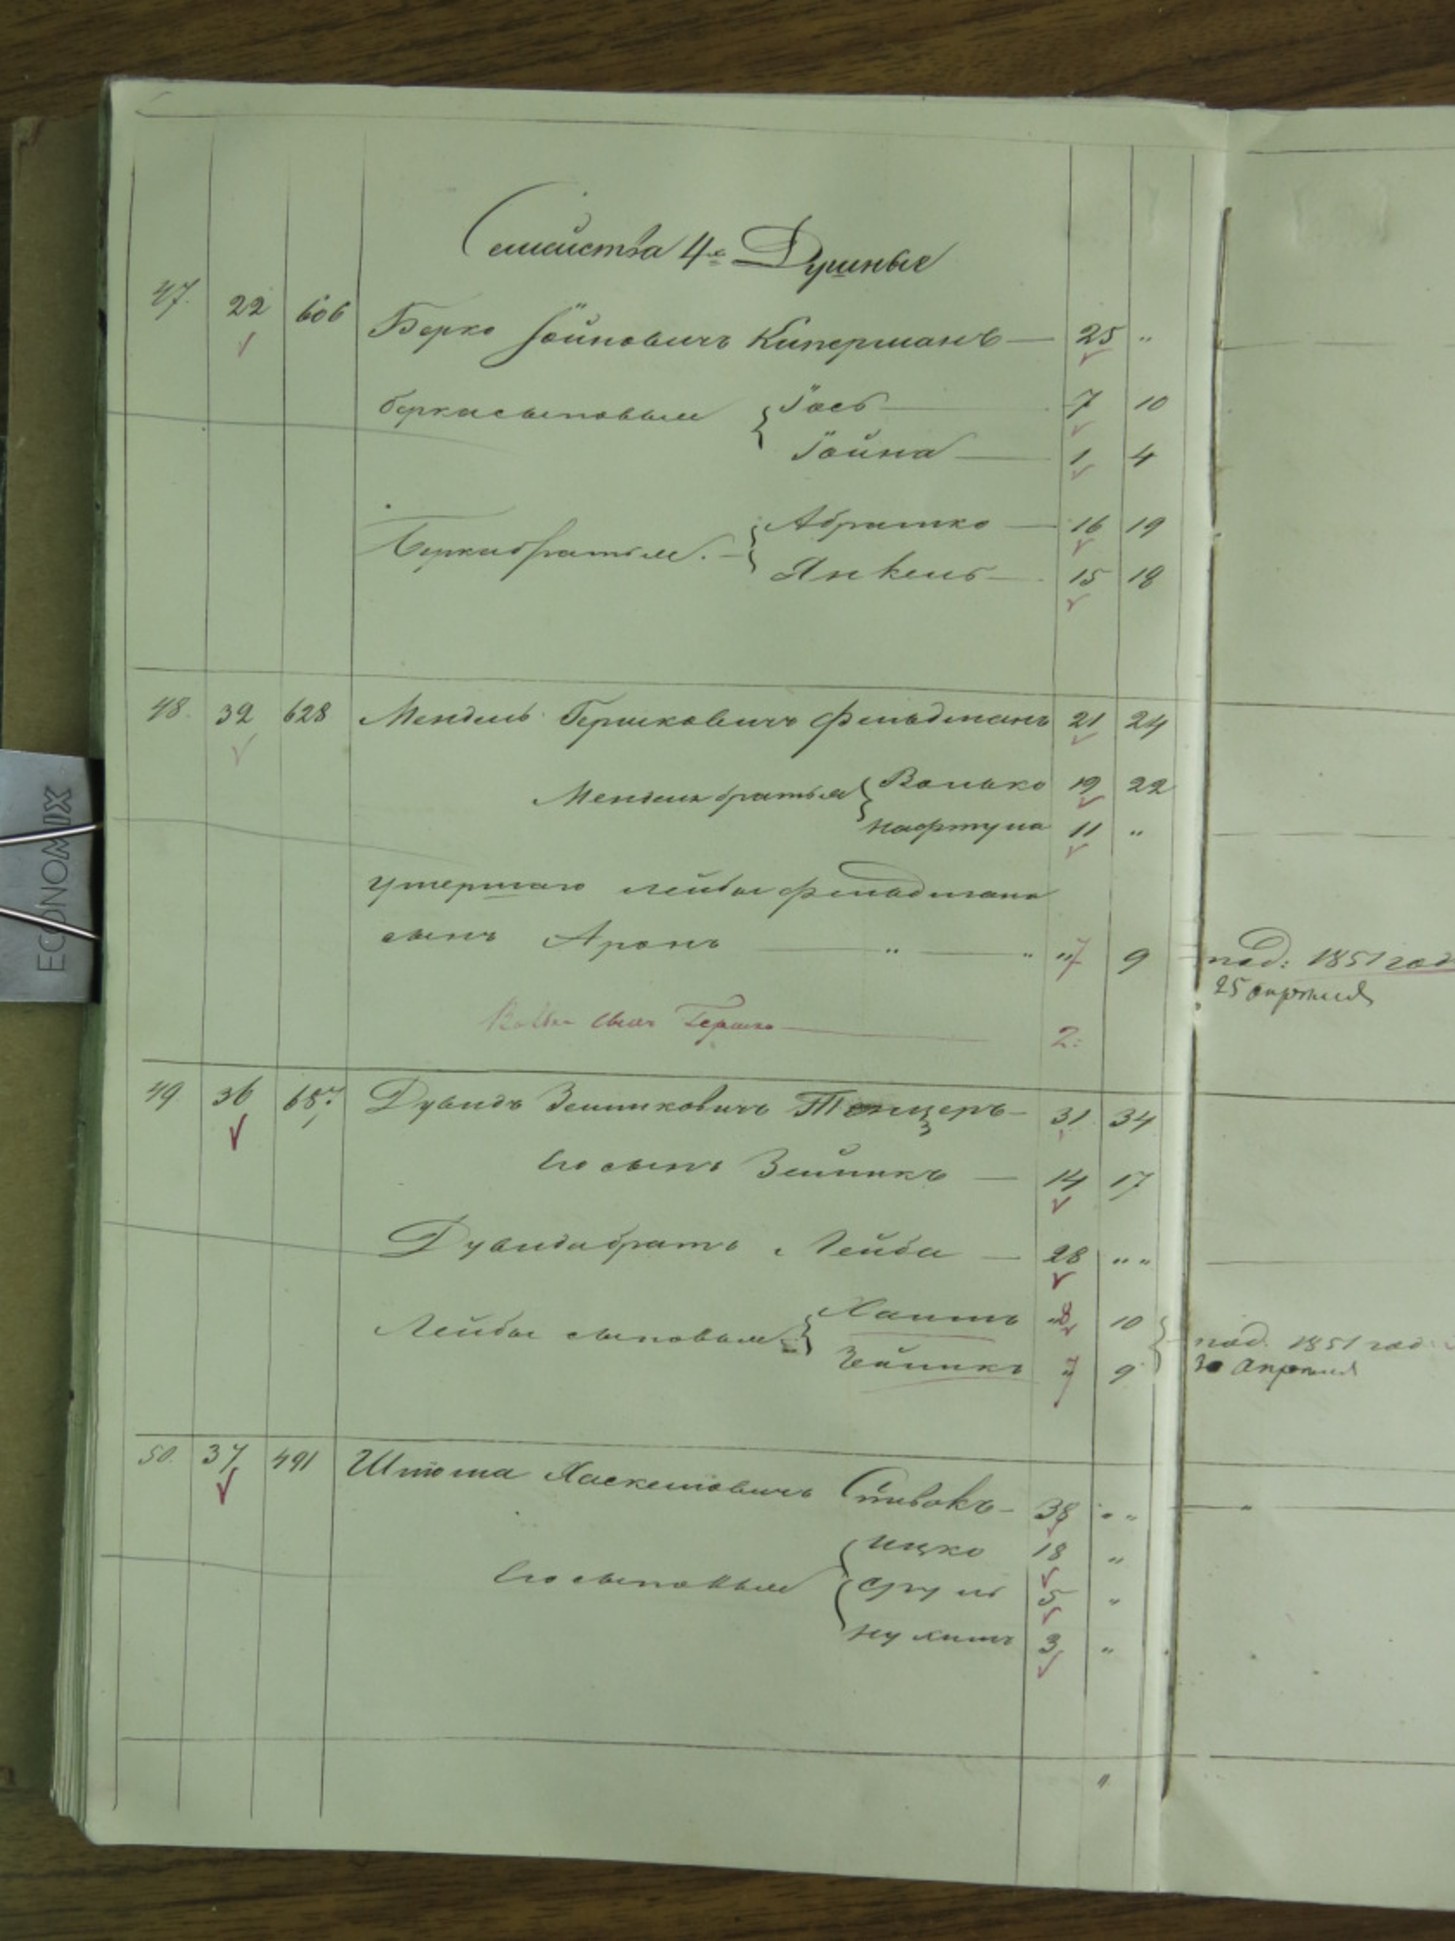 Семейства 4х Душныя
47. 22 606 Берко Iойновичъ Киперманъ — 25 "
берка сыновья { Iось — 7 10
Iойна — 1 4
Берка братья { Абрамко — 16 19
Янкель — 15 18
48. 32 628 Мендель Гершковичъ Фельдманъ 21 24
Менделя братья { Волько 19 22
Нафтула 11 "
умершаго Лейбы Фельдмана
сынъ Аронъ — " — " 7 9 под: 1851 год
25 апреля
сынъ Гершко — 2:
49 36 Дувидъ Зейликовичъ — 31 34
Его сынъ Зейликъ — 14 17
Дувида братъ Лейба — 28 " "
Лейбы сыновья { Хаимъ 8 10 } под. 1851 год
Зейликъ 7 9 30 Апреля
50. 37 491 Хаскелевичъ Спивокъ — 38 " " "
Его сыновья { Ицко 18 "
Сруль 5 "
Нухимъ 3 "
"
ECONOMIX